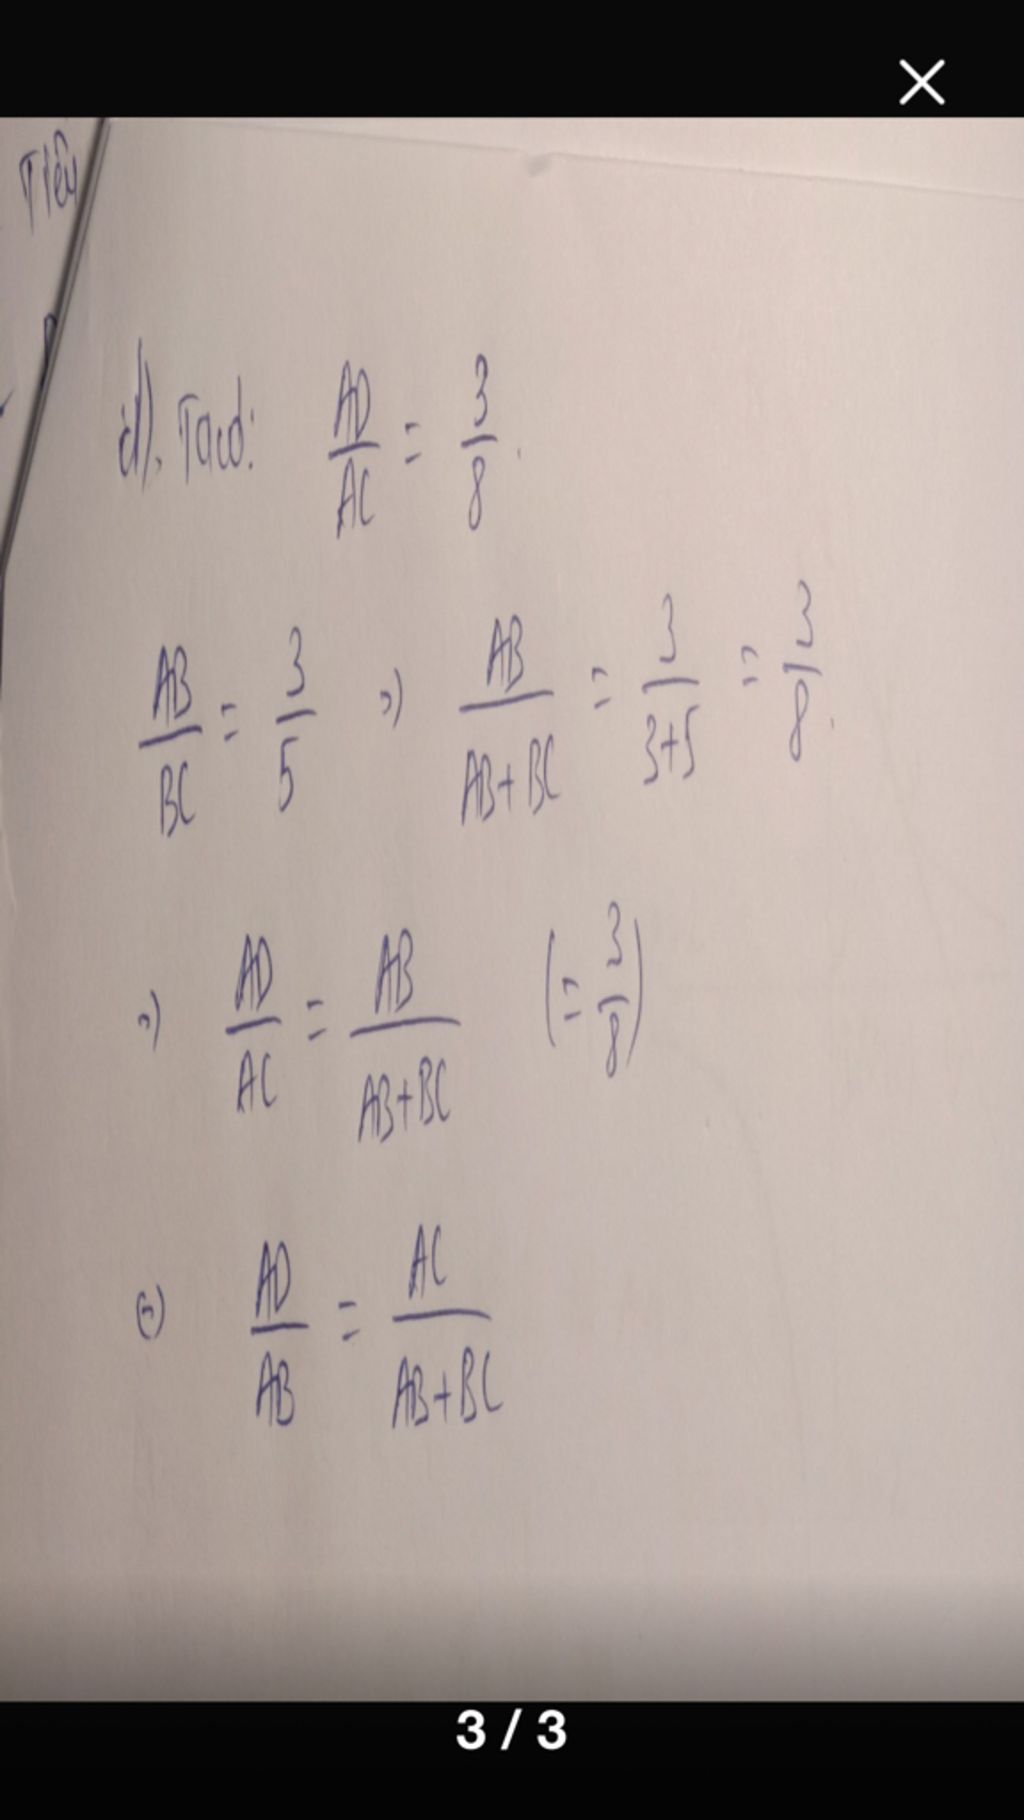 Tiếu
d), Ta có: AD/AC = 3/8.
AB/BC = 3/5 => AB/AB+BC = 3/3+5 = 3/8.
=> AD/AC = AB/AB+BC (= 3/8)
<=> AD/AB = AC/AB+BC
3 / 3